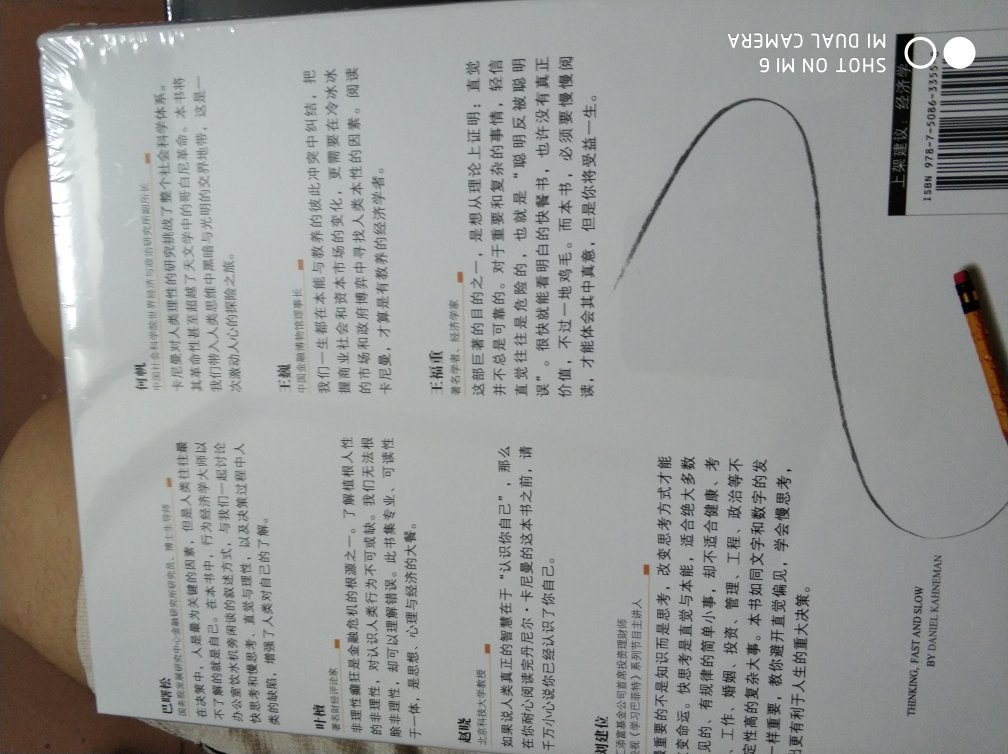 巴曙松
国务院发展研究中心金融研究所研究员、博士生导师
在决策中，人是最为关键的因素，但是人类往往最
不了解的就是自己。在本书中，行为经济学大师以
办公室饮水机旁闲谈的叙述方式，与我们一起讨论
快思考和慢思考，直觉与理性，以及决策过程中人
类的缺陷，增强了人类对自己的了解。
叶檀
著名财经评论家
非理性癫狂是金融危机的根源之一。了解植根人性
的非理性，对认识人类行为不可或缺。我们无法根
除非理性，却可以理解错误。此书集专业、可读性
于一体，是思想、心理与经济的大餐。
赵晓
北京科技大学教授
如果说人类真正的智慧在于“认识你自己”，那么
在你耐心阅读完丹尼尔·卡尼曼的这本书之前，请
千万小心说你已经认识了你自己。
刘建位
添富基金公司首席投资理财师
央视《学习巴菲特》系列节目主讲人
重要的不是知识而是思考，改变思考方式才能
变命运。快思考是直觉与本能，适合绝大多数
见的、有规律的简单小事，却不适合健康、考
、工作、婚姻、投资、管理、工程、政治等不
定性高的复杂大事。本书如同文字和数字的发
一样重要，教你避开直觉偏见，学会慢思考，
出更有利于人生的重大决策。
何帆
中国社会科学院世界经济与政治研究所副所长
卡尼曼对人类理性的研究挑战了整个社会科学体系。
其革命性甚至超越了天文学中的哥白尼革命。本书将
我们带入人类思维中黑暗与光明的交界地带，这是一
次激动人心的探险之旅。
王巍
中国金融博物馆理事长
我们一生都在本能与教养的彼此冲突中纠结，把
握商业社会和资本市场的变化，更需要在冷冰冰
的市场和政府博弈中寻找人类本性的因素。阅读
卡尼曼，才算是有教养的经济学者。
王福重
著名学者、经济学家
这部巨著的目的之一，是想从理论上证明：直觉
并不总是可靠的。对于重要和复杂的事情，轻信
直觉往往是危险的，也就是“聪明反被聪明
误”。很快就能看明白的快餐书，也许没有真正
价值，不过一地鸡毛。而本书，必须要慢慢阅
读，才能体会其中真意，但是你将受益一生。
THINKING, FAST AND SLOW
BY DANIEL KAHNEMAN
上架建议：经济学
ISBN 978-7-5086-3355
SHOT ON MI 6
MI DUAL CAMERA